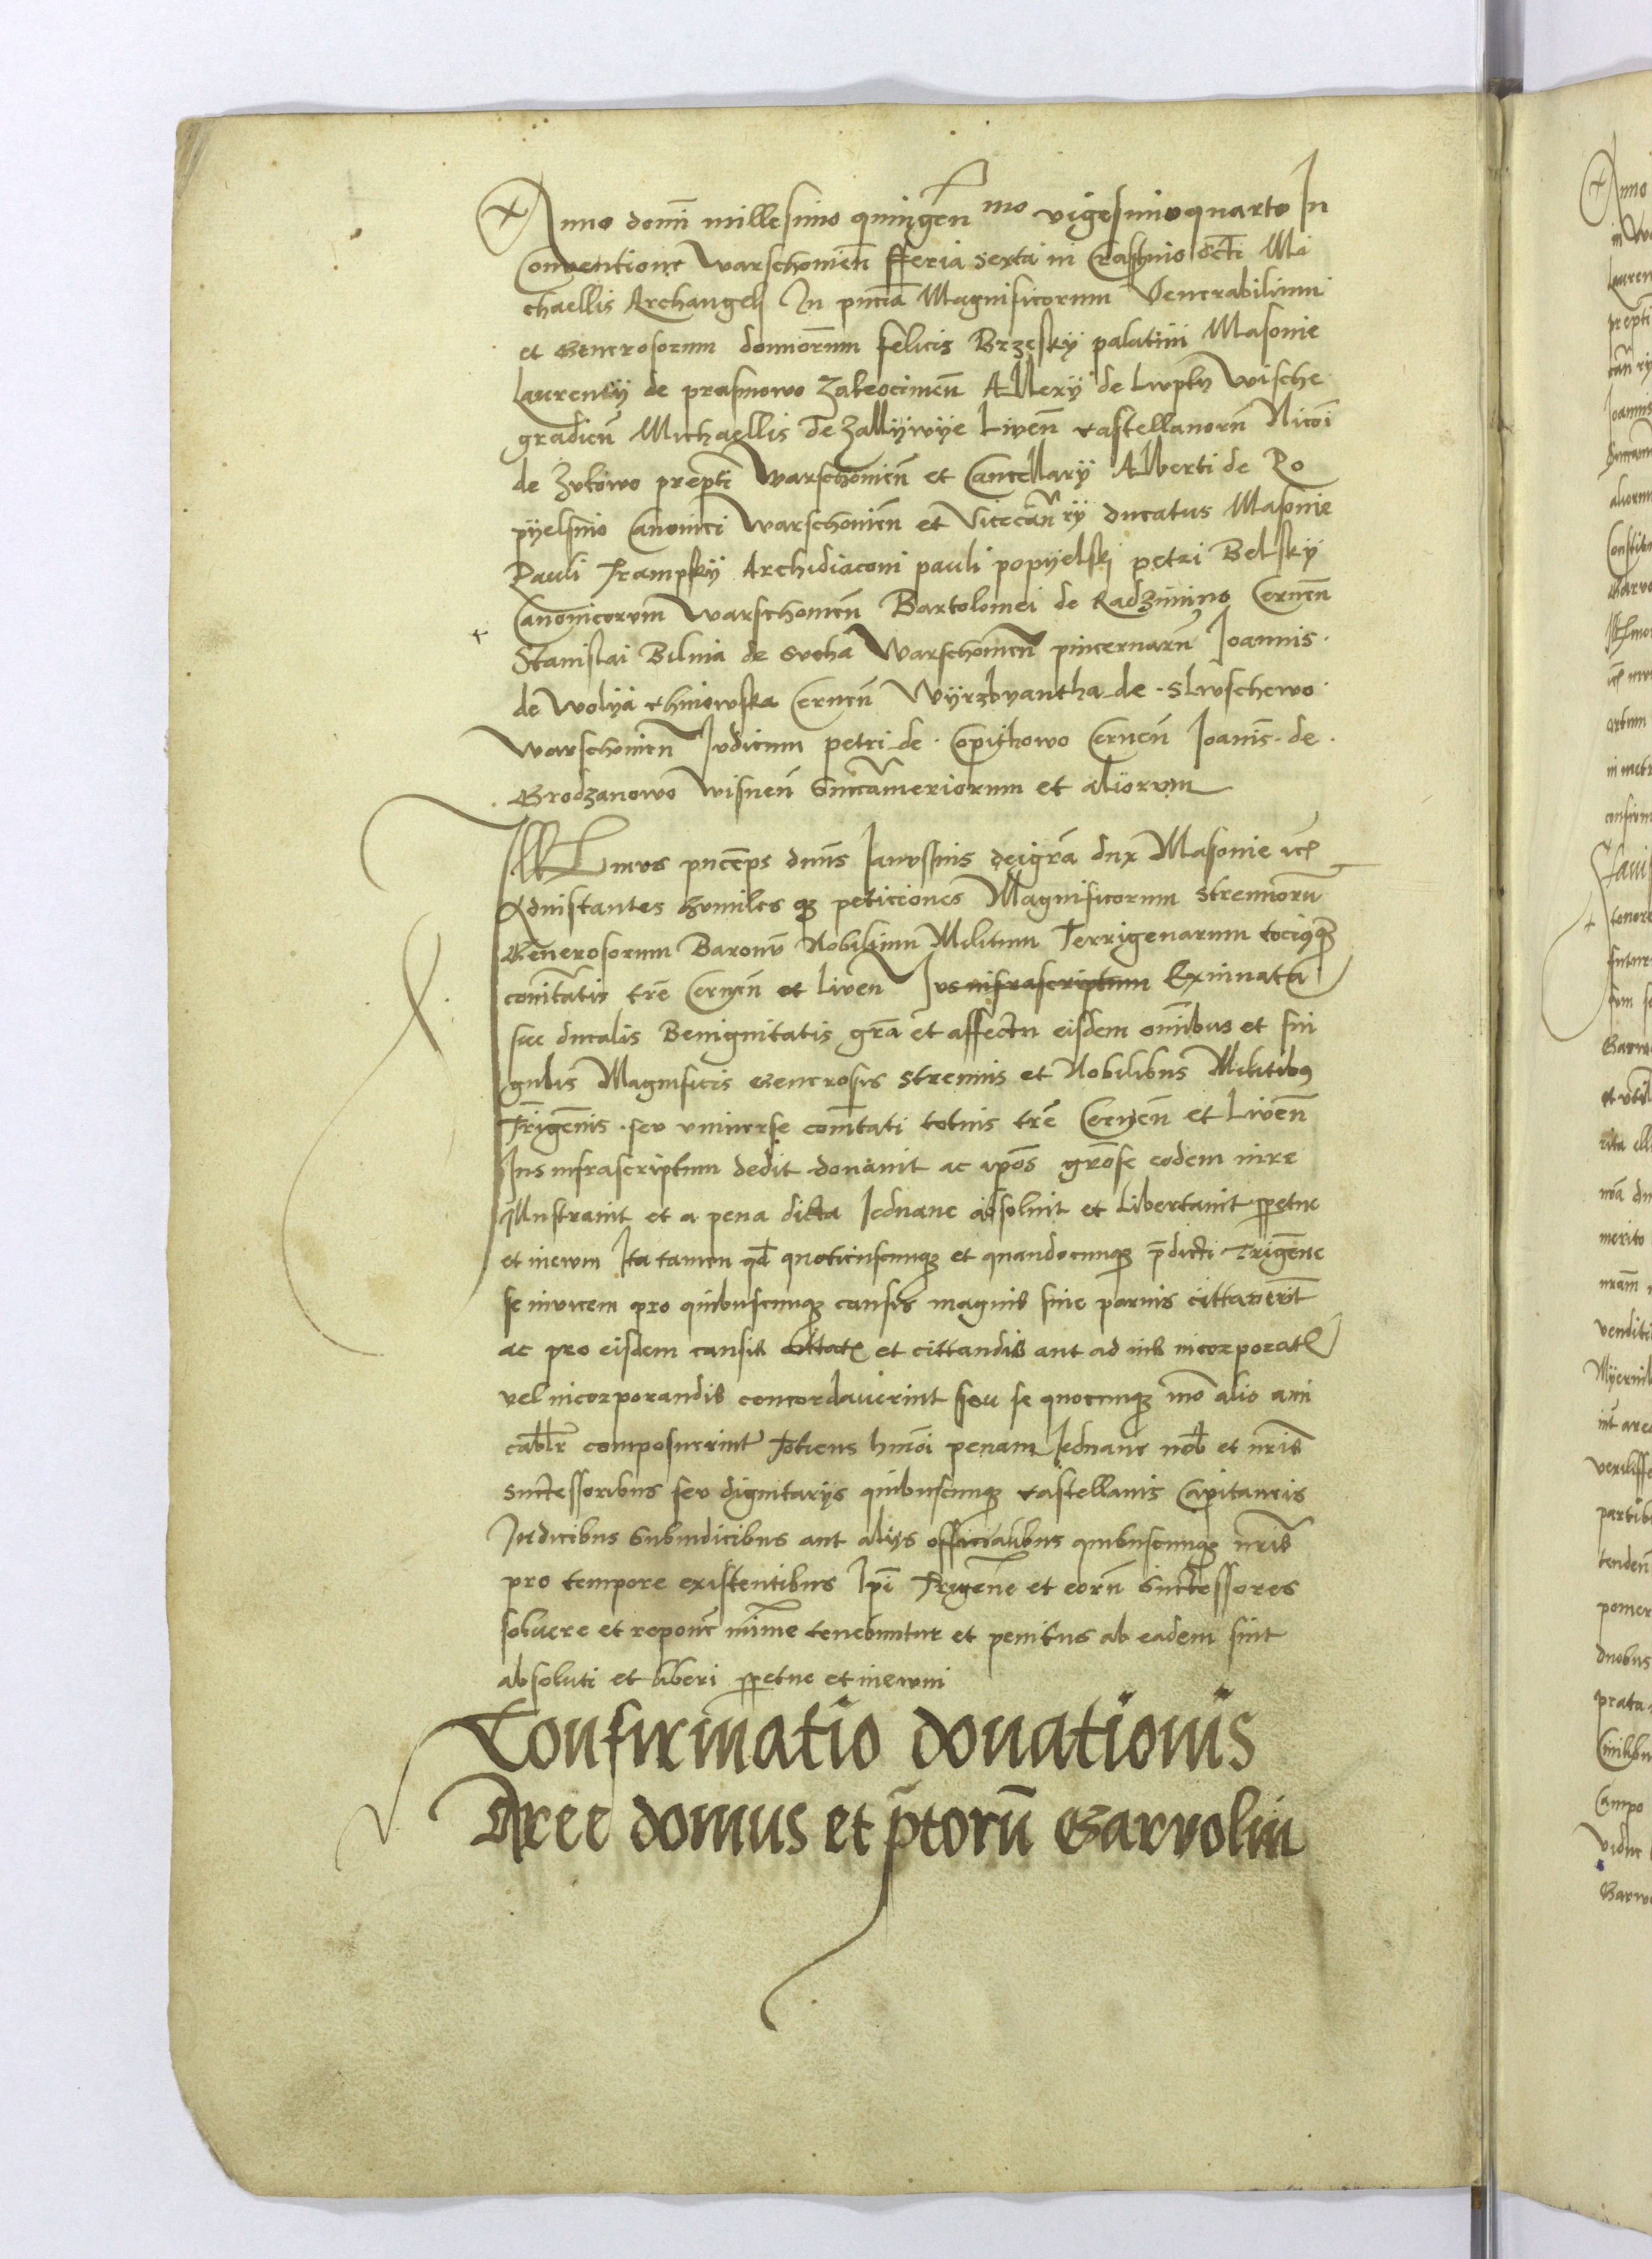 Anno domi millesimo quingen mo vigesimoquarto In
Conventione Warschouien fferia sexta in Crastino scti Mi
chaellis Archangeli In pncia Magnificorum Venerabilium
et Generosorum domiorum felicis Brzesky palatini Masouie
Laurentij de prasmowo Zakrocimen Allexij de Lupky Wische
gradien Michaellis de Zallywye Liven castellanorum Nicoi
de Zukowo prepti Warschouien et Cancellarij Alberti de Po
pyelsmo Canonici Warschouien et Vicecanrij ducatus Masouie
Pauli Trampsky Archidiaconi pauli popyelski petri Belsky
Canonicorum Warschouien Bartolomei de Radzimino Cernen
Stanislai Bilma de Sucha Warschouien pincernaru Joannis
de Wolya chmowska Cernen Wyrzbyantha de Sluschewo
Warschouien Judicum petri de Copithowo Cernen Joanis de
Grodzanowo Wisnen Succameriorum et aliorum
Illmus princeps dnus Janussius dei gra dux Masouie etc
Adinstantes humiles q3 peticiones Magnificorum Strenuoru
Generosorum Baronu Nobilium Militum Terrigenarum tociusq3
comitatis tre Cernen et Liven Jus infrascriptum Ex innata
sue ducalis Benignitatis gra et affectu eisdem omibus et sin
gulis Magnificis Generosis Strenuis et Nobilibus Militibus
Trigenis seu vniuerse comitati totius tre Cernen et Liven
Jus infrascriptum dedit donauit ac ipos grose eodem iure
illustrauit et a pena dicta Jednane absoluit et libertauit ppetue
et ineuum Ita tamen qd quotiescunq3 et quandocunq3 pdicti Trigene
se inuicem pro quibuscunq3 causis magnis siue paruis cittauerit
ac pro eisdem causis cittatis et cittandis aut ad ius incorporatis
vel incorporandis concordauerint seu se quocunq3 mo alio ami
cablr composuerint Totiens hmoi penam Jednane nob et nris
successoribus seu dignitarijs quibuscunq3 castellanis Capitaneis
Judicibus Subiudicibus aut alijs officialibus quibuscunq3 nris
pro tempore existentibus Ipi Trigene et eoru Successores
soluere et repone mime tenebuntur et penitus ab eadem sint
absoluti et liberi ppetue et ineuum
Confirmatio donationis
Aree domus et ptoru Garvolin